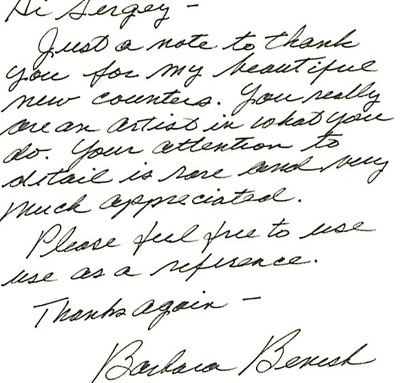 Hi Sergey -
Just a note to thank
you for my beautiful
new counters. You really
are an artist in what you
do. Your attention to
detail is rare and very
much appreciated.
Please feel free to use
use as a reference.
Thanks again -
Barbara Benish